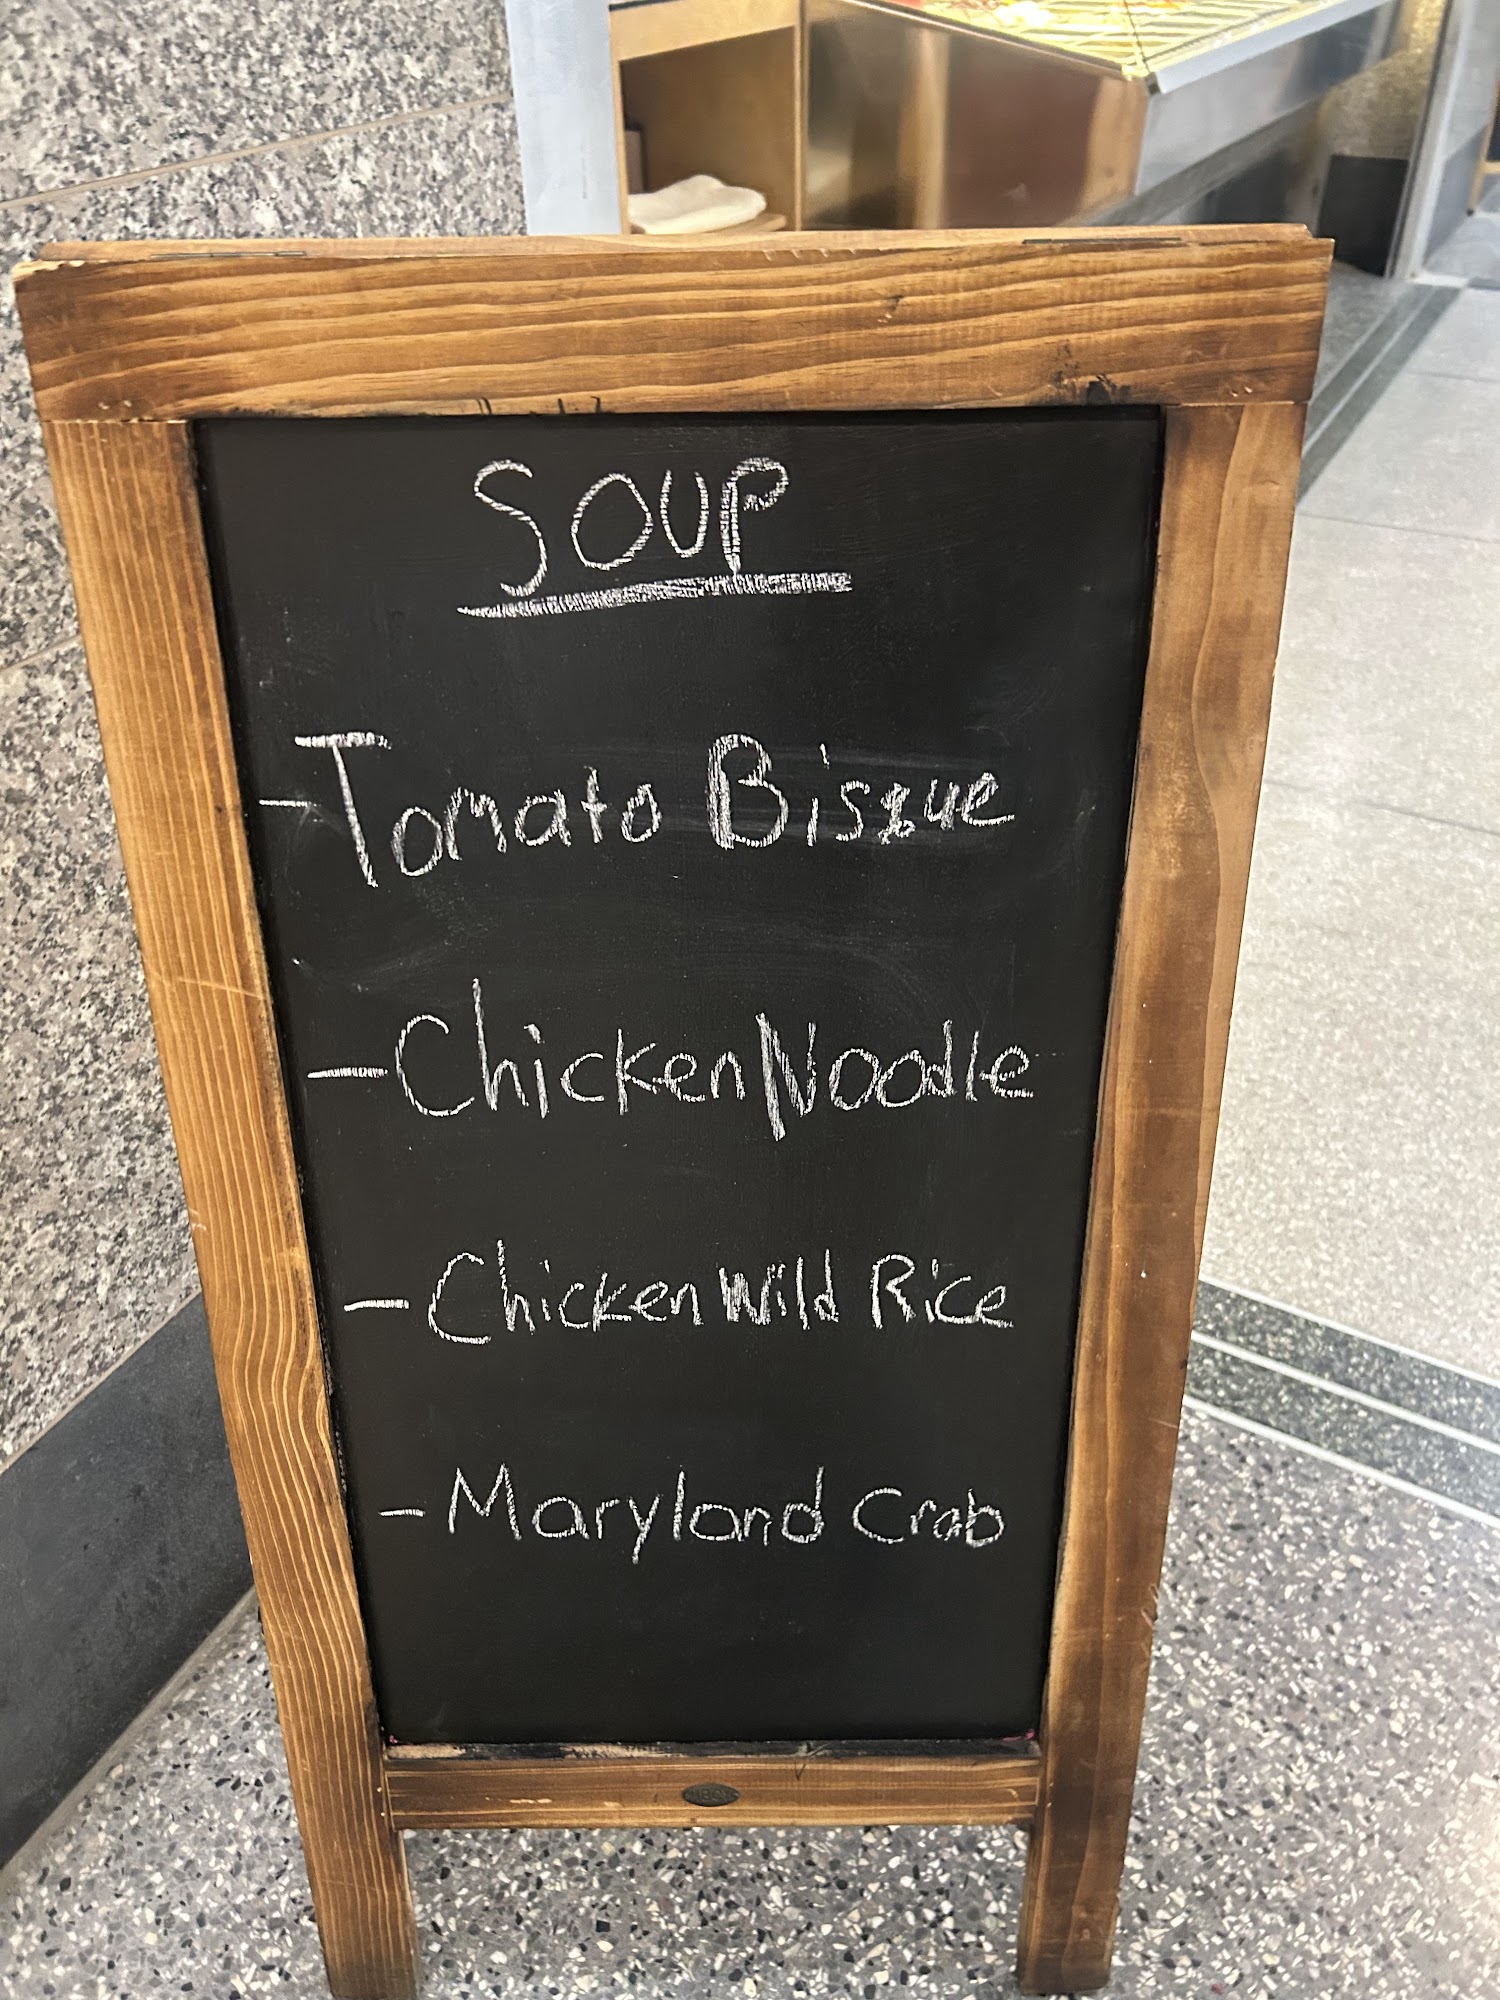 SOUP
-Tomato Bisque
-Chicken Noodle
-Chicken Wild Rice
-Maryland Crab